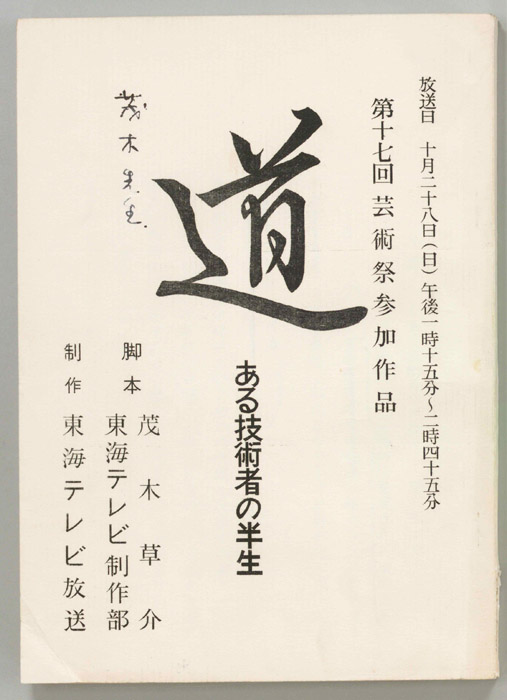 放送日 十月二十八日(日)午後一時十五分~二時四十五分
第十七回芸術祭参加作品
道
ある技術者の半生
茂木先生
脚本 茂木草介
東海テレビ制作部
制作 東海テレビ放送